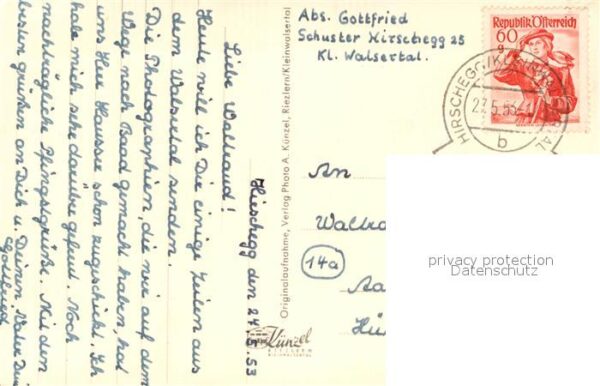 Abs. Gottfried
Schuster Hirschegg 25
Kl. Walsertal.
Republik Österreich
60
g
HIRSCHEGG/KL
AL
b
Hirschegg den 24.5.53
Liebe Waltraud!
Heute will ich Dir einige Zeilen aus
dem Walsertal senden.
Die Photographien, die wir auf dem
Wege nach Baad gemacht haben, hat
uns Herr Hausser schon zugeschickt. Ich
habe mich sehr darüber gefreut. Noch
nachträgliche Pfingstgrüße. Mit den
besten grüßen an Dich u. Deinen Vater Dein
Gottfried
Originalaufnahme, Verlag Photo A. Künzel, Riezlern/Kleinwalsertal
Künzel
RIEZLERN
KLEINWALSERTAL
An
Waltra
14a
Aa
Hü
privacy protection
Datenschutz